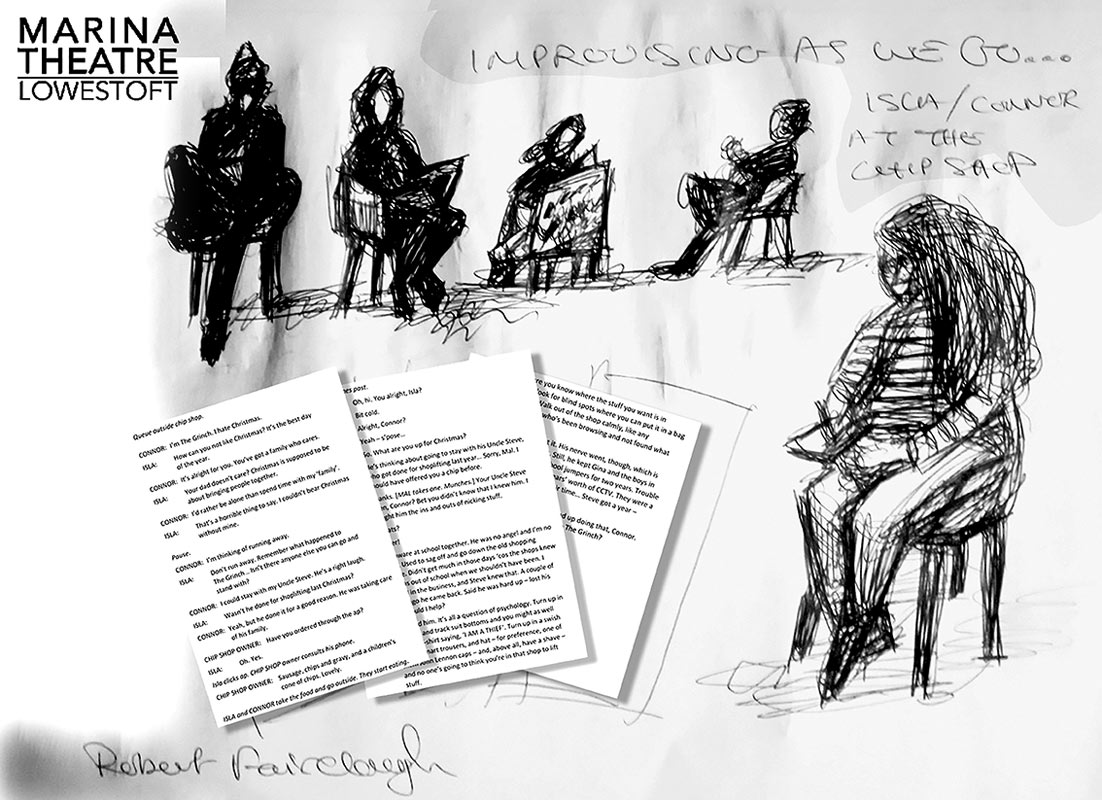 MARINA
THEATRE
LOWESTOFT
IMPROVISING AS WE GO...
ISLA/CONNOR
AT THE
CHIP SHOP
Queue outside chip shop.
CONNOR: I'm The Grinch. I hate Christmas.
ISLA: How can you not like Christmas? It's the best day
of the year.
CONNOR: It's alright for you. You've got a family who cares.
ISLA: Your dad doesn't care? Christmas is supposed to be
about bringing people together.
CONNOR: I'd rather be alone than spend time with my "family".
ISLA: That's a horrible thing to say. I couldn't bear Christmas
without mine.
Pause.
CONNOR: I'm thinking of running away.
ISLA: Don't run away. Remember what happened to
The Grinch... Isn't there anyone else you can go and
stand with?
CONNOR: I could stay with my Uncle Steve. He's a right laugh.
ISLA: Wasn't he done for shoplifting last Christmas?
CONNOR: Yeah, but he done it for a good reason. He was taking care
of his family.
CHIP SHOP OWNER: Have you ordered through the ap?
ISLA: Oh. Yes.
Isla clicks ap. CHIP SHOP owner consults his phone.
CHIP SHOP OWNER: Sausage, chips and gravy, and a children's
cone of chips. Lovely.
ISLA and CONNOR take the food and go outside. They start eating.
post.
Oh, hi. You alright, Isla?
Bit cold.
Alright, Connor?
Yeah – s'pose...
What are you up for Christmas?
He's thinking about going to stay with his Uncle Steve,
who got done for shoplifting last year... Sorry, Mal. I
should have offered you a chip before.
[MAL takes one. Munches.] Your Uncle Steve
Connor? Bet you didn't know that I knew him. I
him the ins and outs of nicking stuff.
at school together. He was no angel and I'm no
Used to sag off and go down the old shopping
Didn't get much in those days 'cos the shops knew
out of school when we shouldn't have been. I
in the business, and Steve knew that. A couple of
go he came back. Said he was hard up – lost his
I help?
him. It's all a question of psychology. Turn up in
and track suit bottoms and you might as well
t-shirt saying, 'I AM A THIEF'. Turn up in a swish
trousers, and hat – for preference, one of
John Lennon caps – and, above all, have a shave –
and no one's going to think you're in that shop to lift
stuff.
you know where the stuff you want is in
look for blind spots where you can put it in a bag
Walk out of the shop calmly, like any
who's been browsing and not found what
it. His nerve went, though, which is
Still, he kept Gina and the boys in
school jumpers for two years. Trouble
years' worth of CCTV. They were a
time... Steve got a year –
up doing that, Connor.
The Grinch?
Robert Fairclough